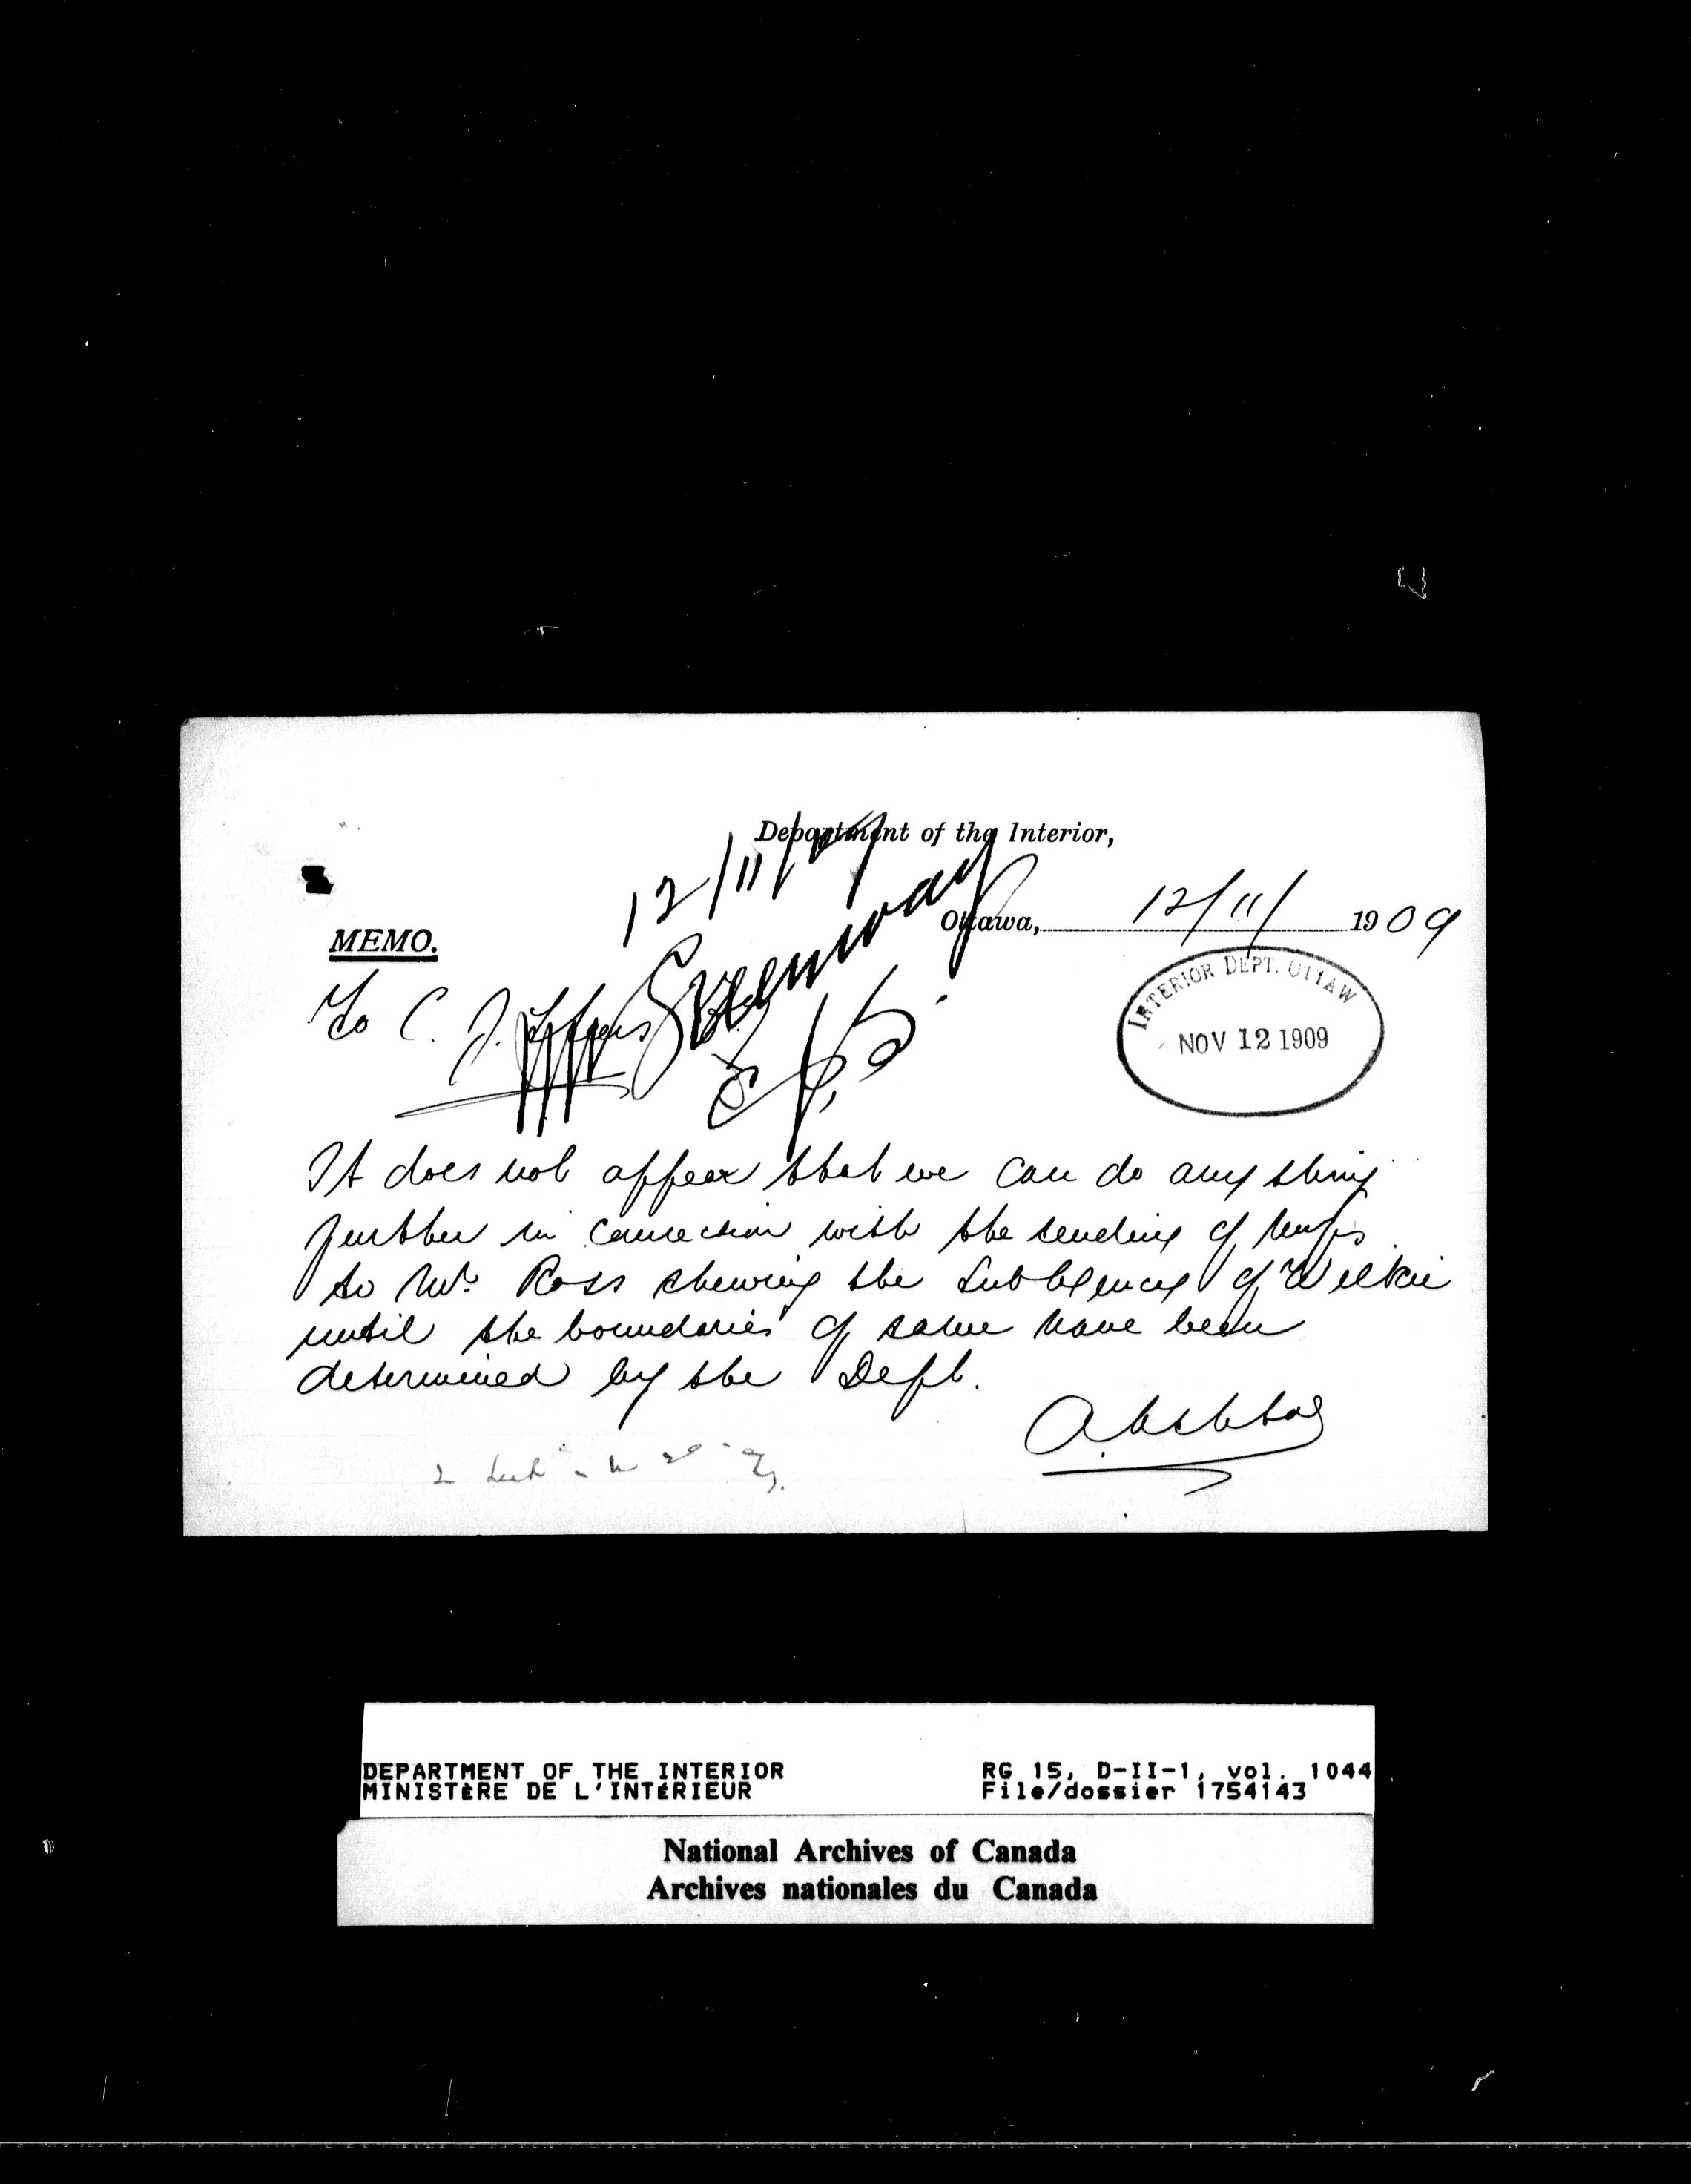 Department of the Interior,
12/11/09
Ottawa, 12/11/ 1909
MEMO.
Greenway
To C. J.
INTERIOR DEPT. OTTAW
NOV 12 1909
It does not appear that we can do any thing
further in connection with the sending of maps
to Mr. Ross shewing the Sub Agency of Wilkie
until the boundaries of same have been
determined by the Dept.
DEPARTMENT OF THE INTERIOR RG 15, D-II-1, vol. 1044
MINISTÈRE DE L'INTÉRIEUR File/dossier 1754143
National Archives of Canada
Archives nationales du Canada